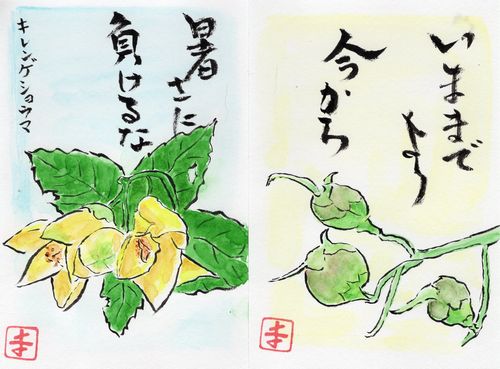 暑さに
負けるな
キレンゲショウマ
いままで
より
今から